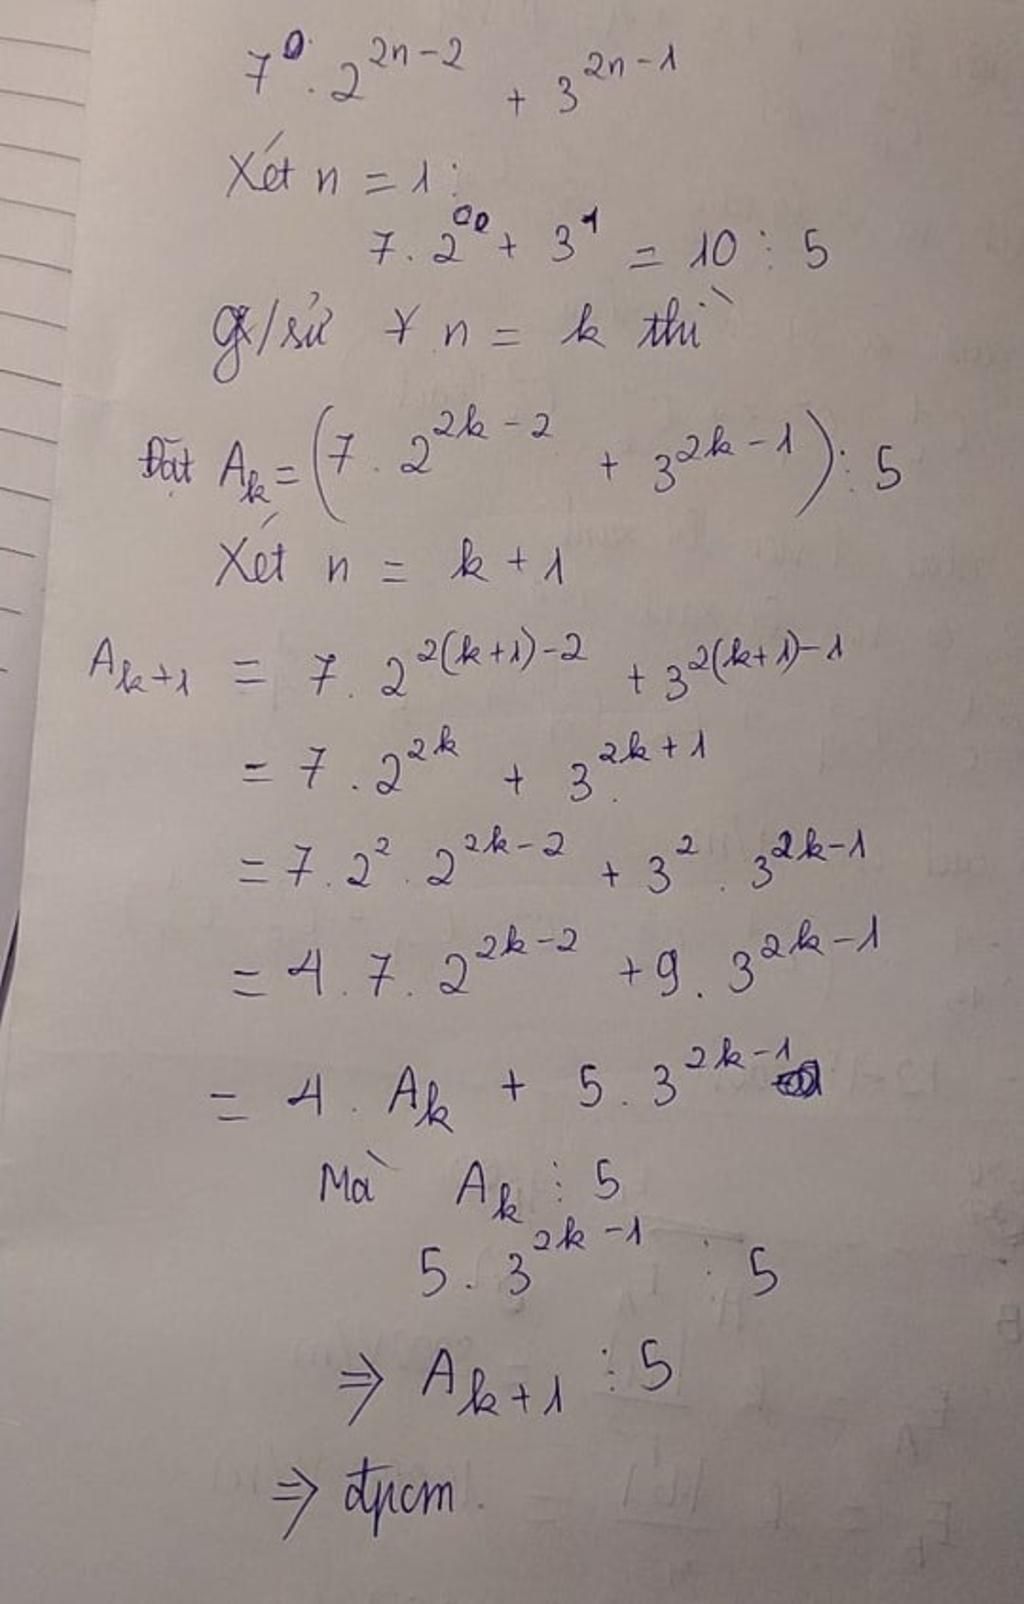 7⁰·2²ⁿ⁻² + 3²ⁿ⁻¹
Xét n = 1:
7.2⁰⁰ + 3¹ = 10 ⋮ 5
g/sử ∀ n = k thì
Đặt Aₖ = (7.2²ᵏ⁻² + 3²ᵏ⁻¹) ⋮ 5
Xét n = k + 1
Aₖ₊₁ = 7.2²⁽ᵏ⁺¹⁾⁻² + 3²⁽ᵏ⁺¹⁾⁻¹
= 7.2²ᵏ + 3²ᵏ⁺¹
= 7.2².2²ᵏ⁻² + 3².3²ᵏ⁻¹
= 4.7.2²ᵏ⁻² + 9.3²ᵏ⁻¹
= 4.Aₖ + 5.3²ᵏ⁻¹
Mà Aₖ ⋮ 5
5.3²ᵏ⁻¹ ⋮ 5
⇒ Aₖ₊₁ ⋮ 5
⇒ đpcm.